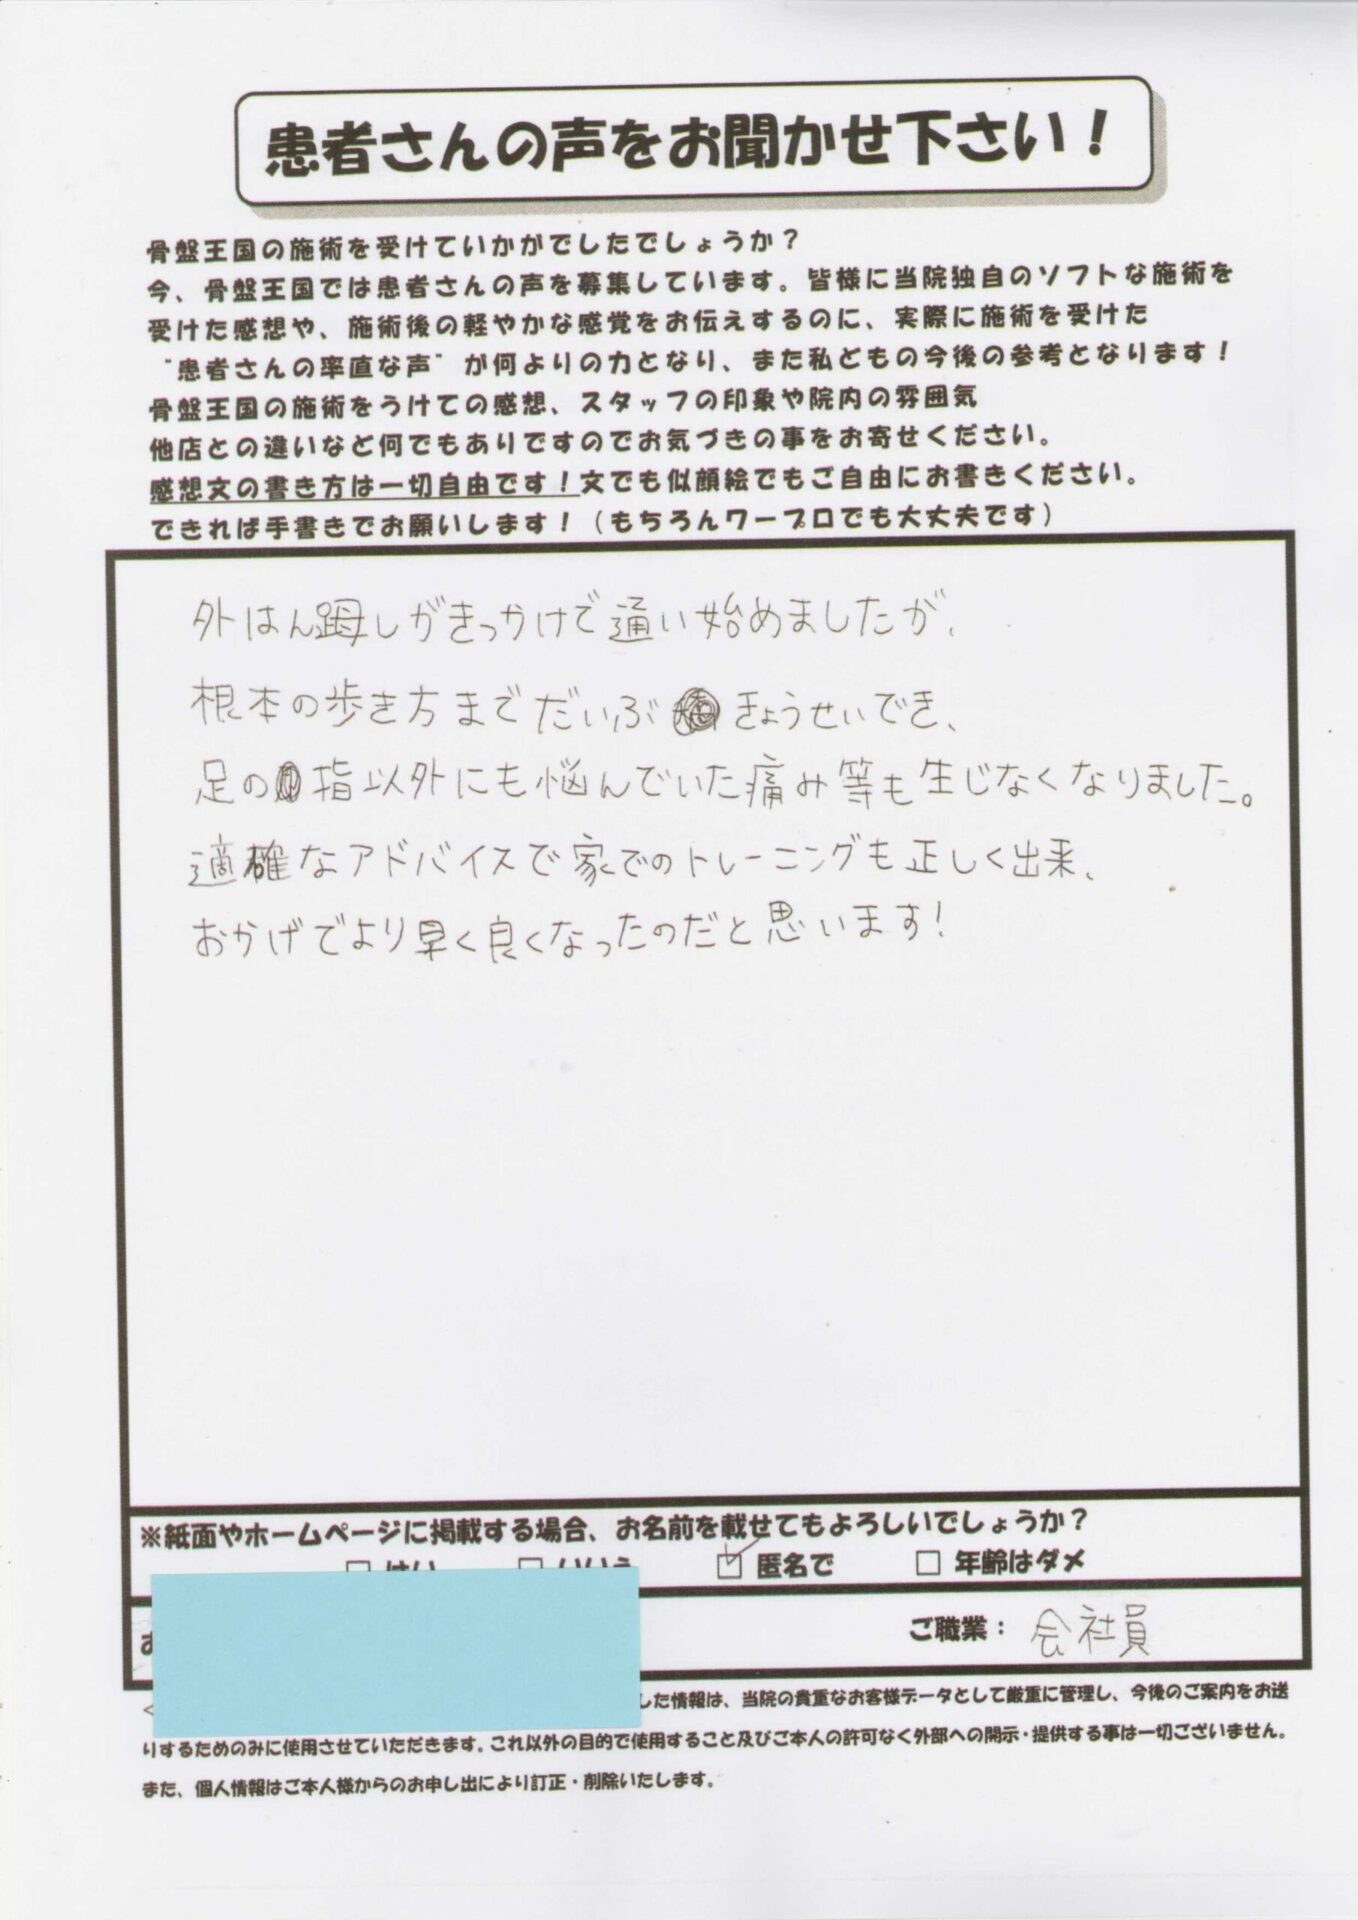 患者さんの声をお聞かせ下さい！
骨盤王国の施術を受けていかがでしたでしょうか？
今、骨盤王国では患者さんの声を募集しています。皆様に当院独自のソフトな施術を
受けた感想や、施術後の軽やかな感覚をお伝えするのに、実際に施術を受けた
"患者さんの率直な声"が何よりの力となり、また私どもの今後の参考となります！
骨盤王国の施術をうけての感想、スタッフの印象や院内の雰囲気
他店との違いなど何でもありですのでお気づきの事をお寄せください。
感想文の書き方は一切自由です！文でも似顔絵でもご自由にお書きください。
できれば手書きでお願いします！（もちろんワープロでも大丈夫です）
外はん踇しがきっかけで通い始めましたが、
根本の歩き方までだいぶきょうせいでき、
足の指以外にも悩んでいた痛み等も生じなくなりました。
適確なアドバイスで家でのトレーニングも正しく出来、
おかげでより早く良くなったのだと思います！
※紙面やホームページに掲載する場合、お名前を載せてもよろしいでしょうか？
□ はい □ いいえ ☑ 匿名で □ 年齢はダメ
ご職業： 会社員
した情報は、当院の貴重なお客様データとして厳重に管理し、今後のご案内をお送
りするためのみに使用させていただきます。これ以外の目的で使用すること及びご本人の許可なく外部への開示・提供する事は一切ございません。
また、個人情報はご本人様からのお申し出により訂正・削除いたします。